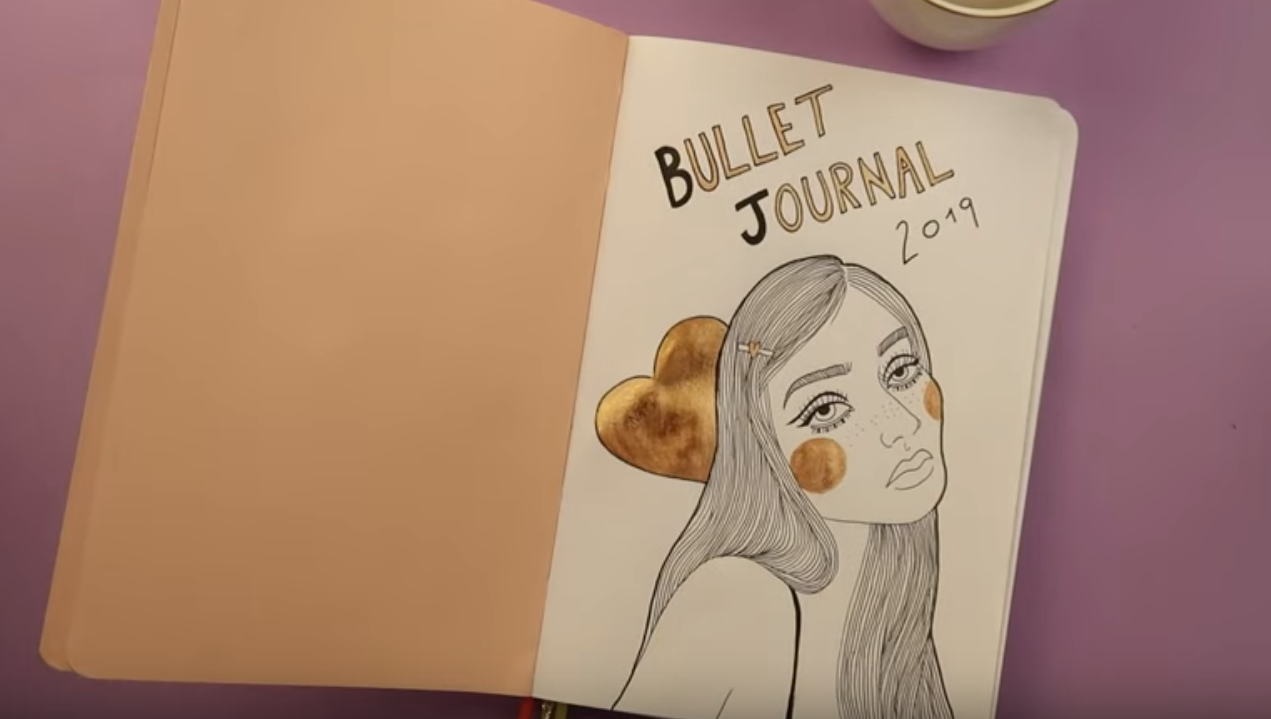 BULLET
JOURNAL
2019